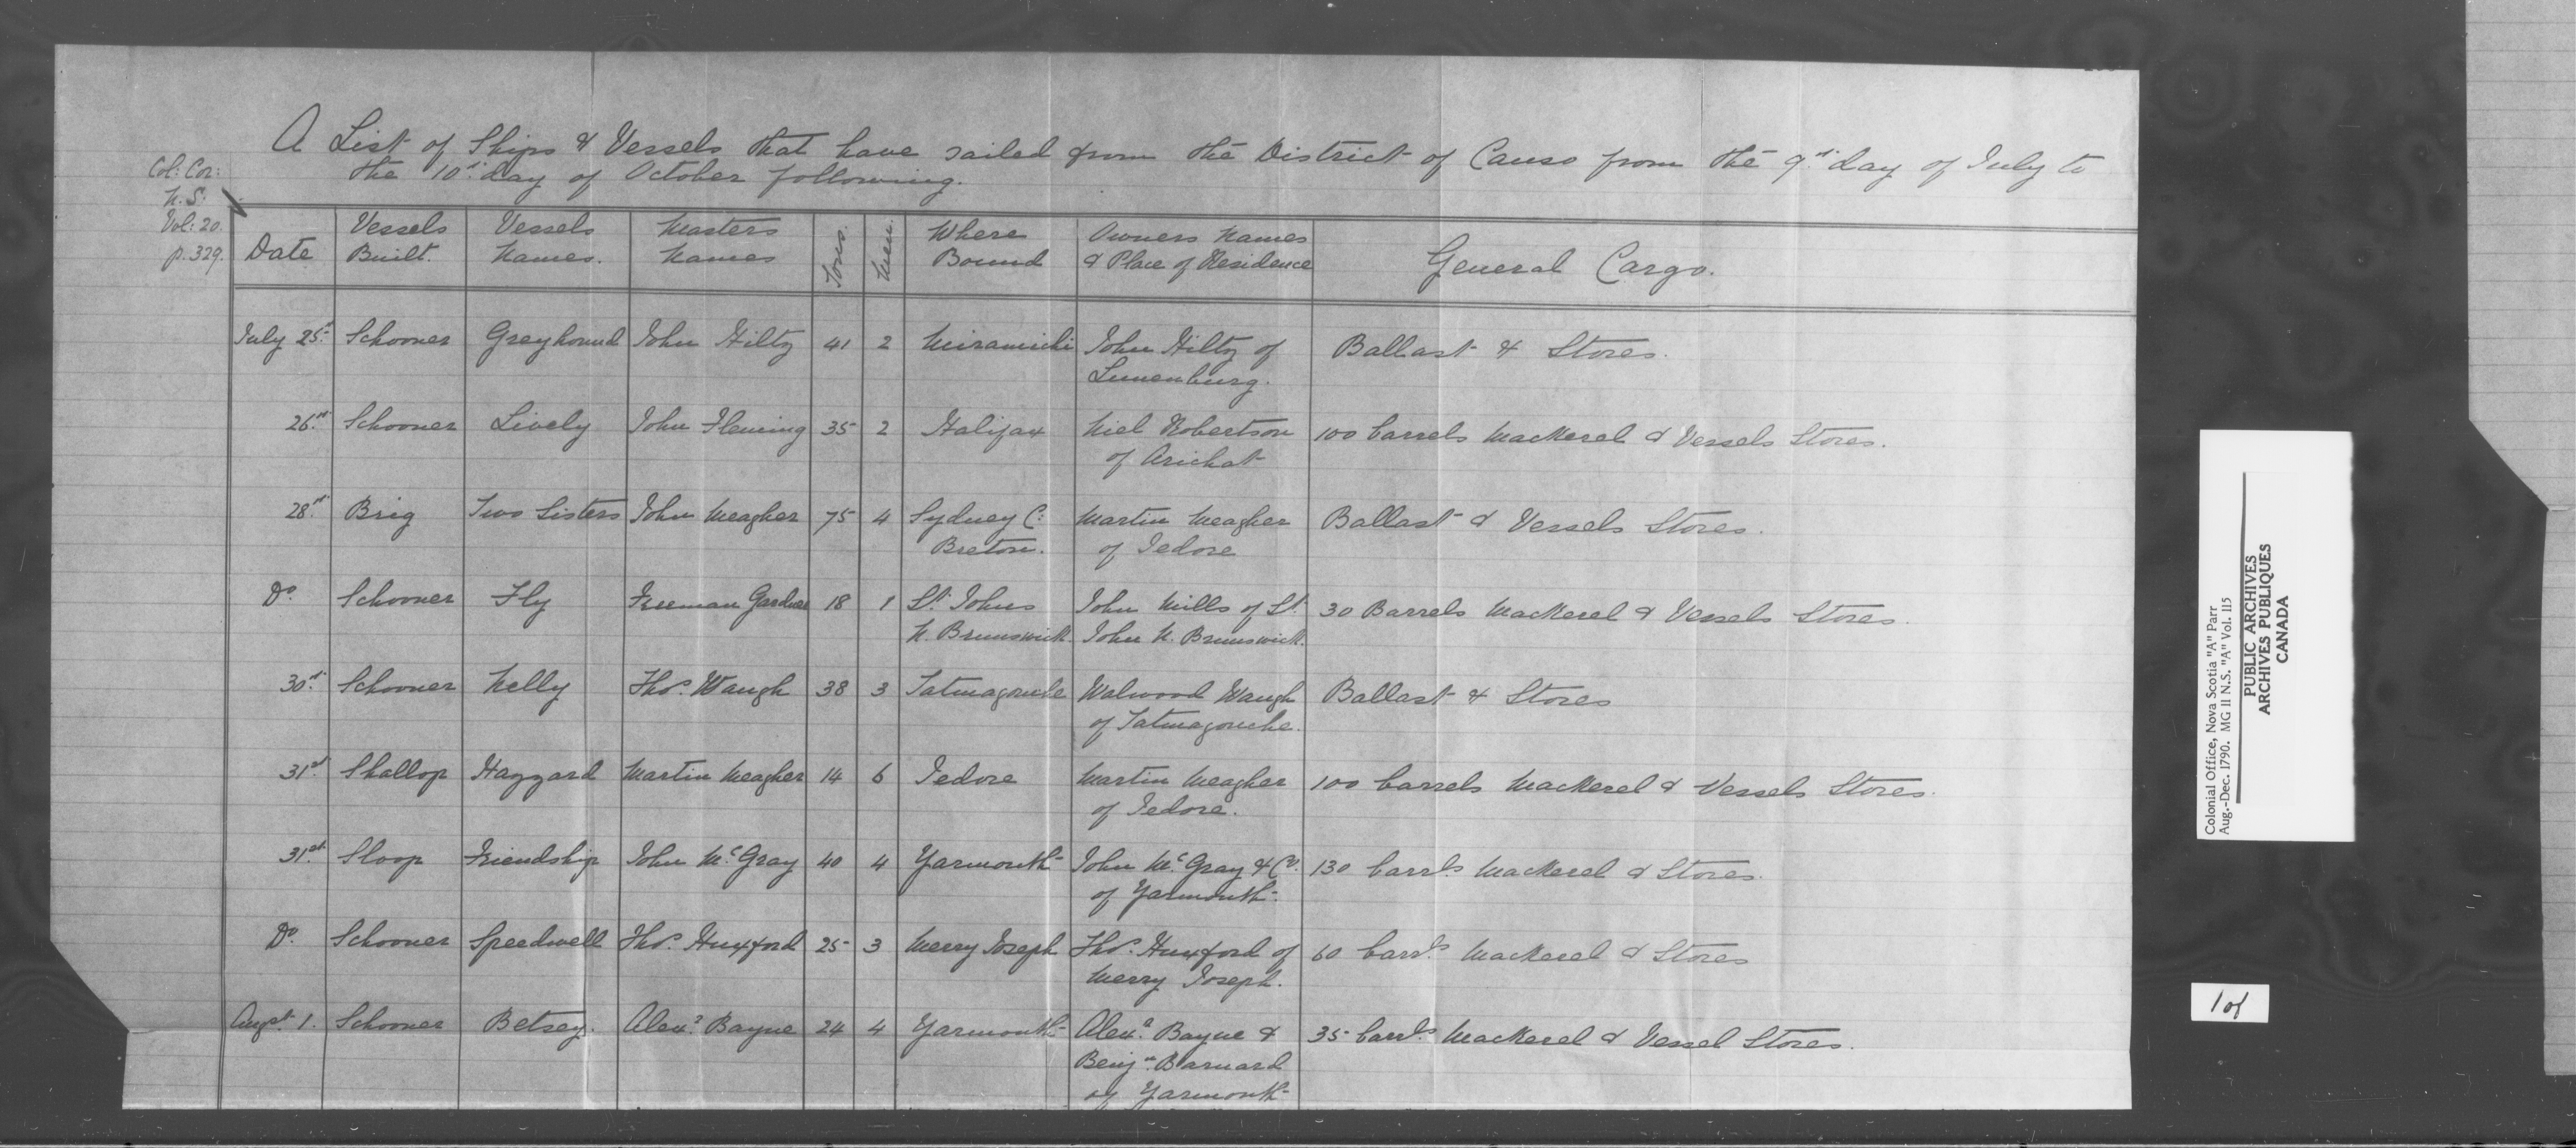 A List of Ships & Vessels that have sailed from the District of Canso from the 9th day of July to
the 10th day of October following.
Col: Cor:
N. S.
Vol: 20.
p. 329.
Date | Vessels Built. | Vessels Names. | Masters Names | Tons. | Men. | Where Bound | Owners Names & Place of Residence | General Cargo.
July 25th | Schooner | Greyhound | John Hiltz | 41 | 2 | Miramichi | John Hiltz of Lunenburg. | Ballast & Stores.
26th | Schooner | Lively | John Fleming | 35 | 2 | Halifax | Niel Robertson of Arichat | 100 barrels Mackerel & Vessels Stores.
28th | Brig | Two Sisters | John Meagher | 75 | 4 | Sydney C: Breton. | Martin Meagher of Jedore | Ballast & Vessels Stores.
Do. | Schooner | Fly | Freeman Gardner | 18 | 1 | St. Johns N. Brunswick | John Mills of St. John N. Brunswick. | 30 Barrels Mackerel & Vessels Stores.
30th | Schooner | Nelly | Thos. Waugh | 38 | 3 | Tatmagouche | Walwood Waugh of Tatmagouche. | Ballast & Stores
31st | Shallop | Haggard | Martin Meagher | 14 | 6 | Jedore | Martin Meagher of Jedore. | 100 barrels Mackerel & Vessels Stores.
31st | Sloop | Friendship | John McGray | 40 | 4 | Yarmouth | John McGray & Co. of Yarmouth. | 130 barrls Mackerel & Stores.
Do. | Schooner | Speedwell | Thos. Huxford | 25 | 3 | Merry Joseph | Thos. Huxford of Merry Joseph. | 60 barrls Mackerel & Stores
Augst 1. | Schooner | Betsey. | Alexr. Bayne | 24 | 4 | Yarmouth | Alexr. Bayne & Benjn. Barnard of Yarmouth | 35 barrls Mackerel & Vessel Stores.
Colonial Office, Nova Scotia "A" Parr
Aug.-Dec. 1790. MG 11 N.S. "A" Vol. 115
PUBLIC ARCHIVES
ARCHIVES PUBLIQUES
CANADA
1 of